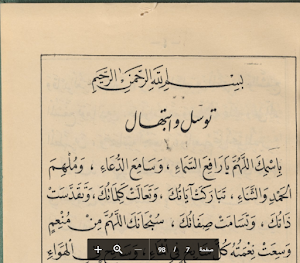 بسم الله الرحمن الرحيم
توسل وابتهال
باسمك اللهم يا رافع السماء ، وسامع الدعاء ، وملهم
الحمد والثناء ، تباركت آياتك ، وتعالت كلماتك ، وتقدست
ذاتك ، وتسامت صفاتك ، سبحانك اللهم من منعم
وسعت نعمته الهواء
صفحة 7 / 98